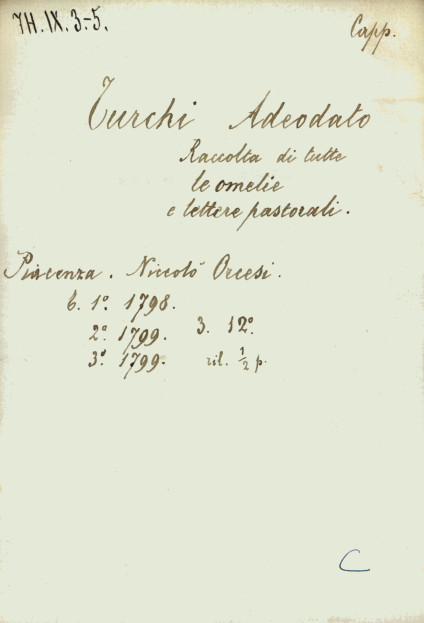 7H.IX.3-5.
Capp.
Turchi Adeodato
Raccolta di tutte
le omelie
e lettere pastorali.
Piacenza. Niccolò Orcesi.
t. 1º. 1798.
2º. 1799. 3. 12º.
3º. 1799. ril. ½ p.
C